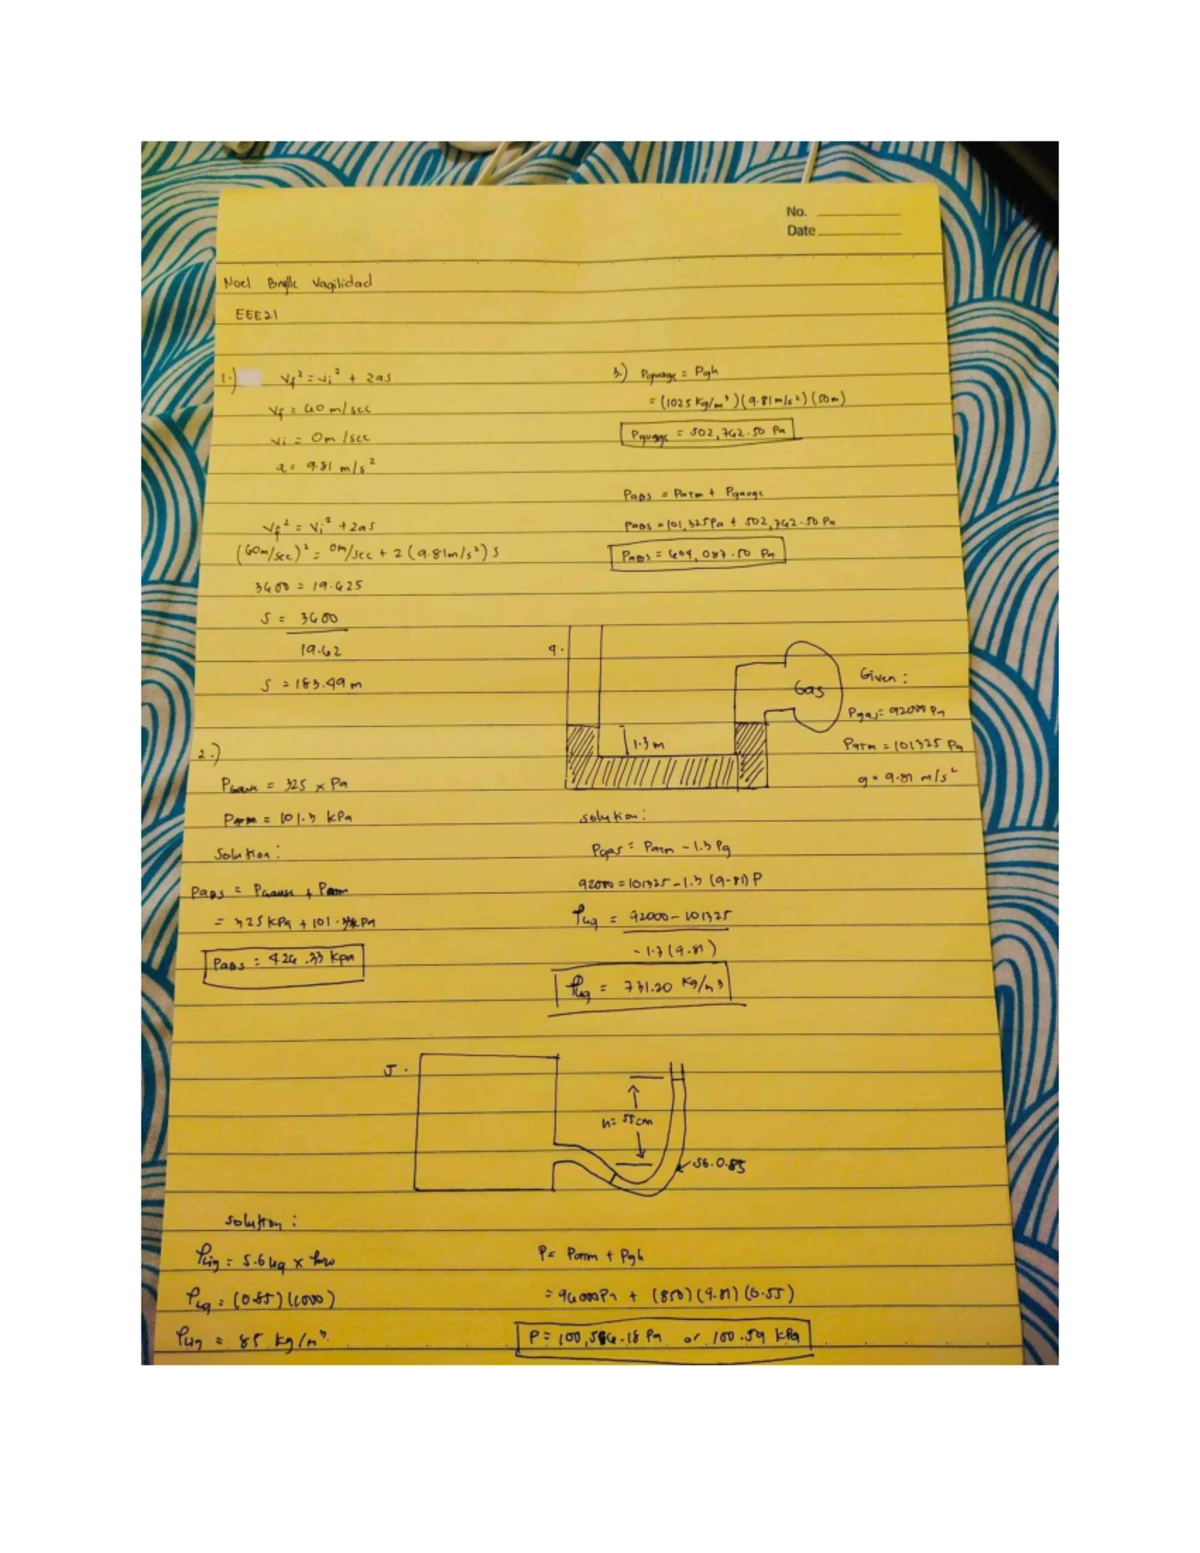 No.
Date
Noel Brylle Vagilidad
EEE21
1.) Vf² = Vi² + 2as
Vf = 60 m/sec
Vi = 0m/sec
a = 9.81 m/s²
Vf² = Vi² + 2as
(60m/sec)² = 0m/sec + 2(9.81m/s²)s
3600 = 19.62s
S = 3600
19.62
S = 183.49m
2.)
= 325 × Pa
Patm = 101.3 kPa
Solution:
Pabs = + Patm
= 325 kPa + 101. kPa
Pabs = 426.33 kpa
3.) Pguage = Pgh
= (1025 kg/m³)(9.81m/s²)(50m)
Pguage = 502,762.50 Pa
Pabs = Patm + Pgauge
Pabs = 101,325Pa + 502,762.50 Pa
Pabs = 604,087.50 Pa
4.
Gas
1.3m
Given:
Pgas = 92000 Pa
Patm = 101325 Pa
g = 9.81 m/s²
solution:
Pgas = Patm - 1.3 Pg
92000 = 101325 - 1.3 (9.81) P
ρliq = 92000 - 101325
-1.3 (9.81)
ρliq = 731.20 kg/m³
5.
h = 55cm
SG. 0.85
solution:
ρliq = S.Gliq × ρH2O
ρliq = (0.85)(1000)
ρliq = 85 kg/m³.
P = Patm + Pgh
= 96000Pa + (850)(9.81)(0.55)
P = 100,586.18 Pa or 100.59 kPa